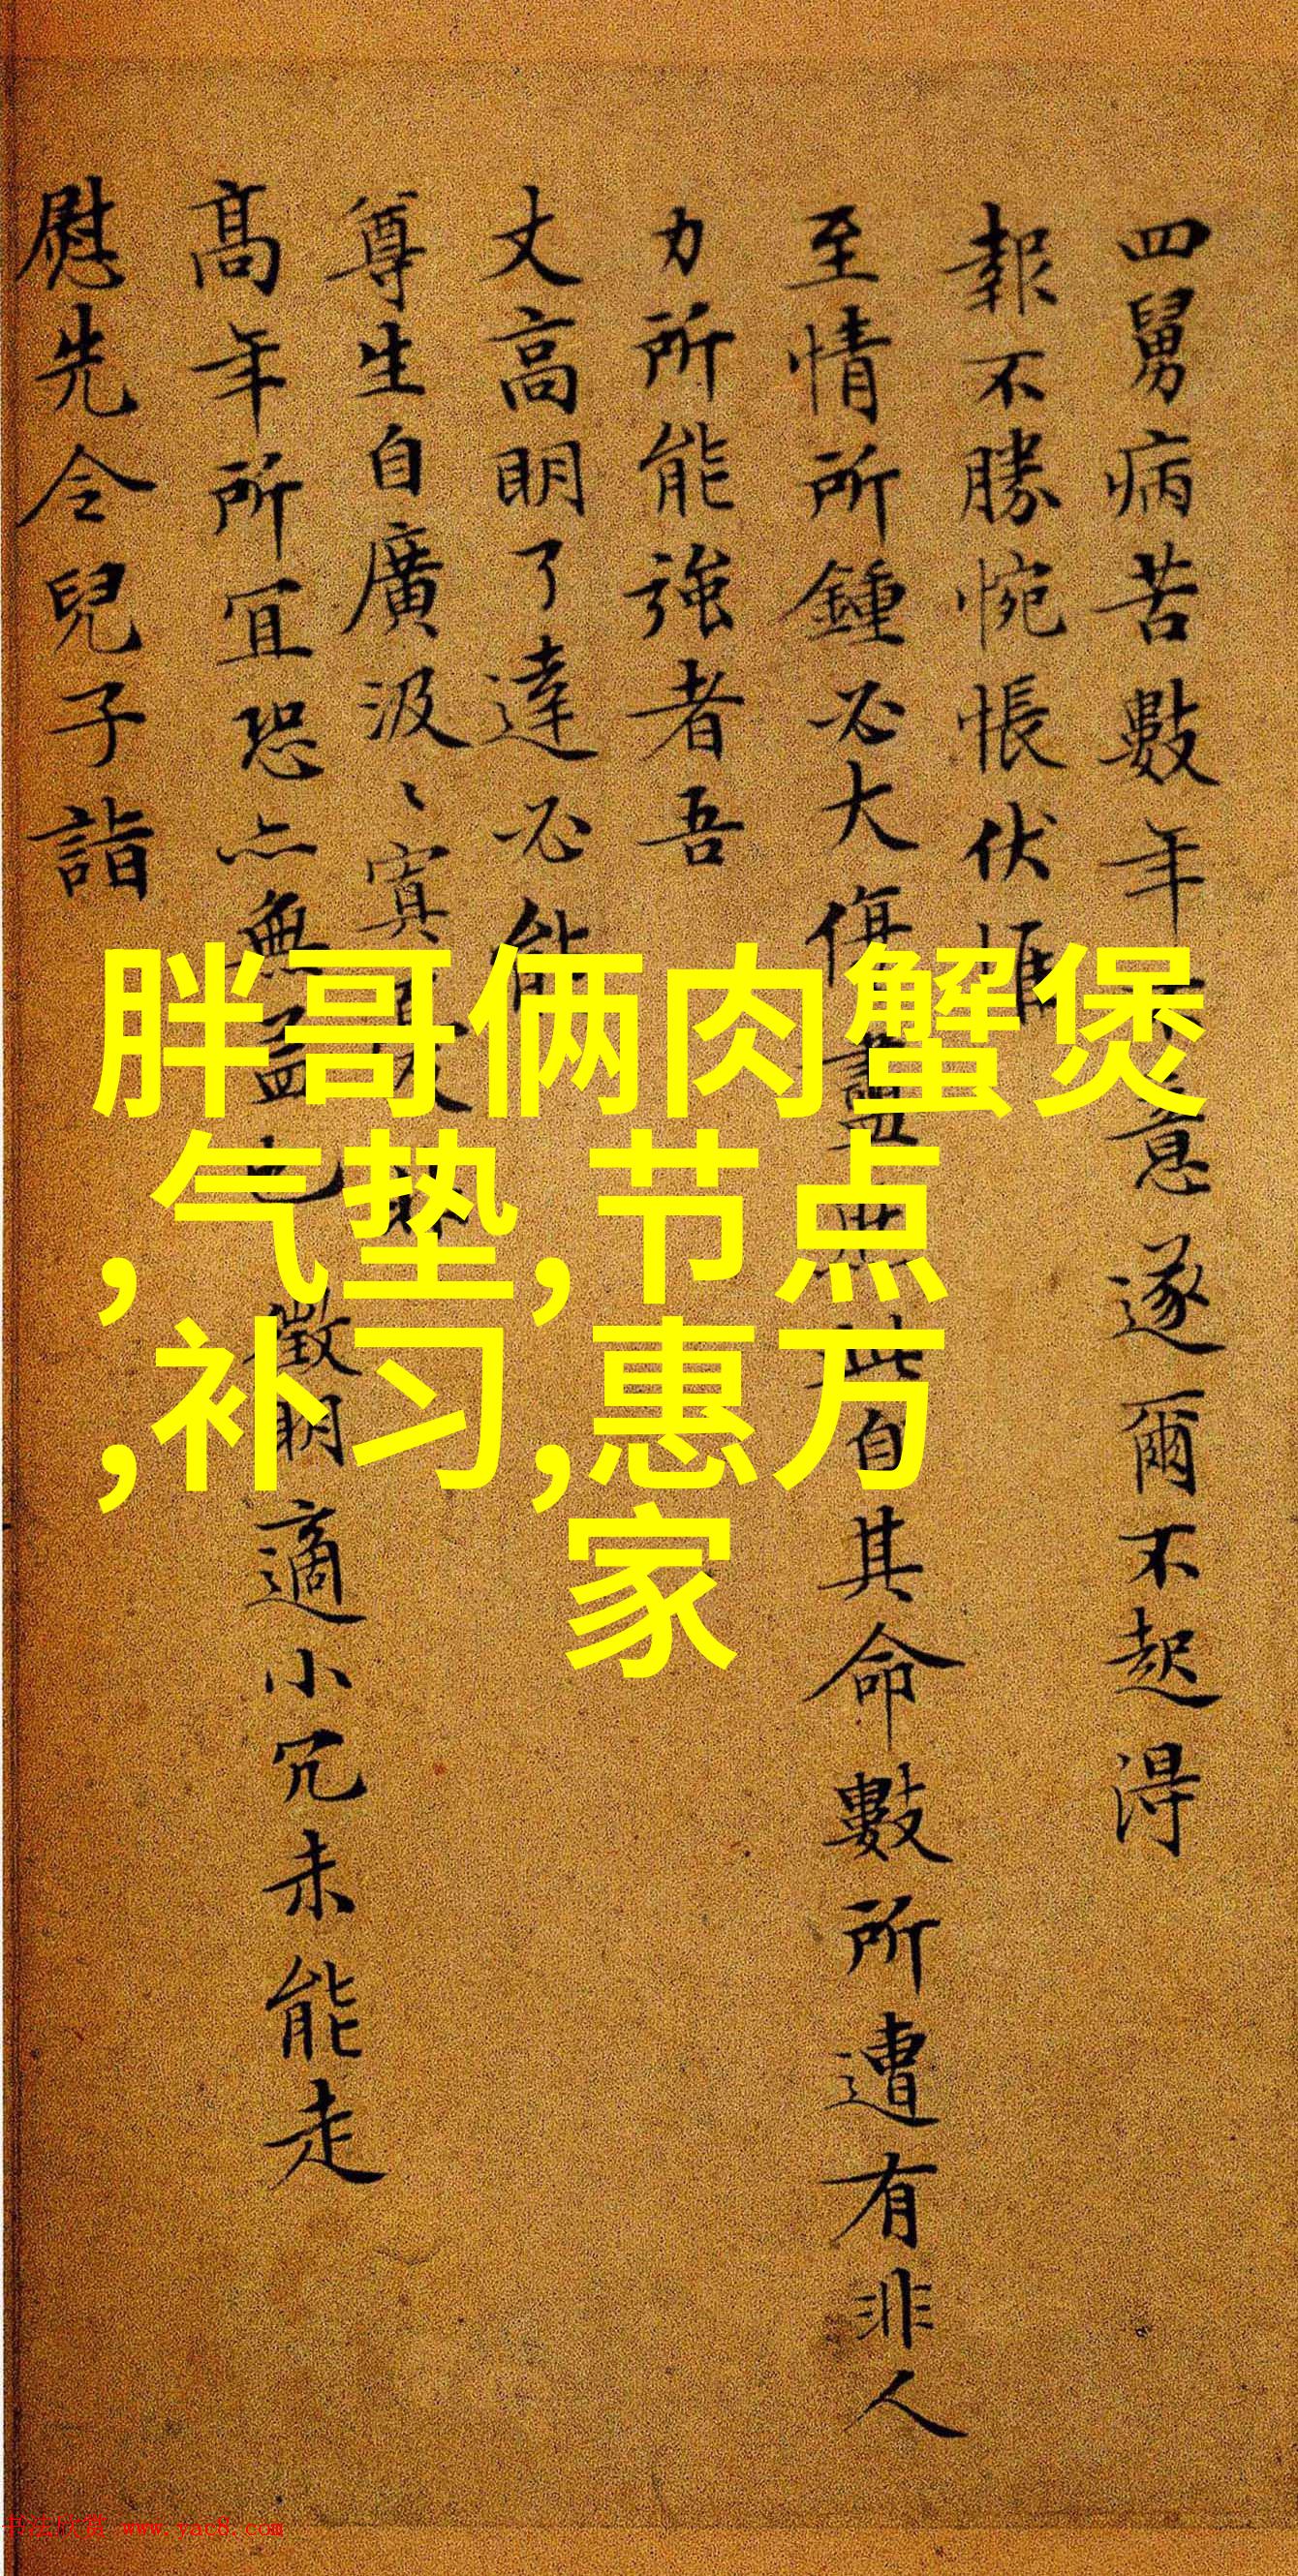 四舅病苦數年意遂爾不起得
報不勝惋悵伏惟
至情所鍾必大傷此自其命數所遭有非人
力所能強者吾
丈高明了達必能
尊生自廣汲〻
高年所宜恐亦無益也 徵明適小冗未能走
慰先令兒子詣
胖哥俩肉蟹煲
,气垫,节点
,补习,惠万
家
书法欣赏 www.yac8.com